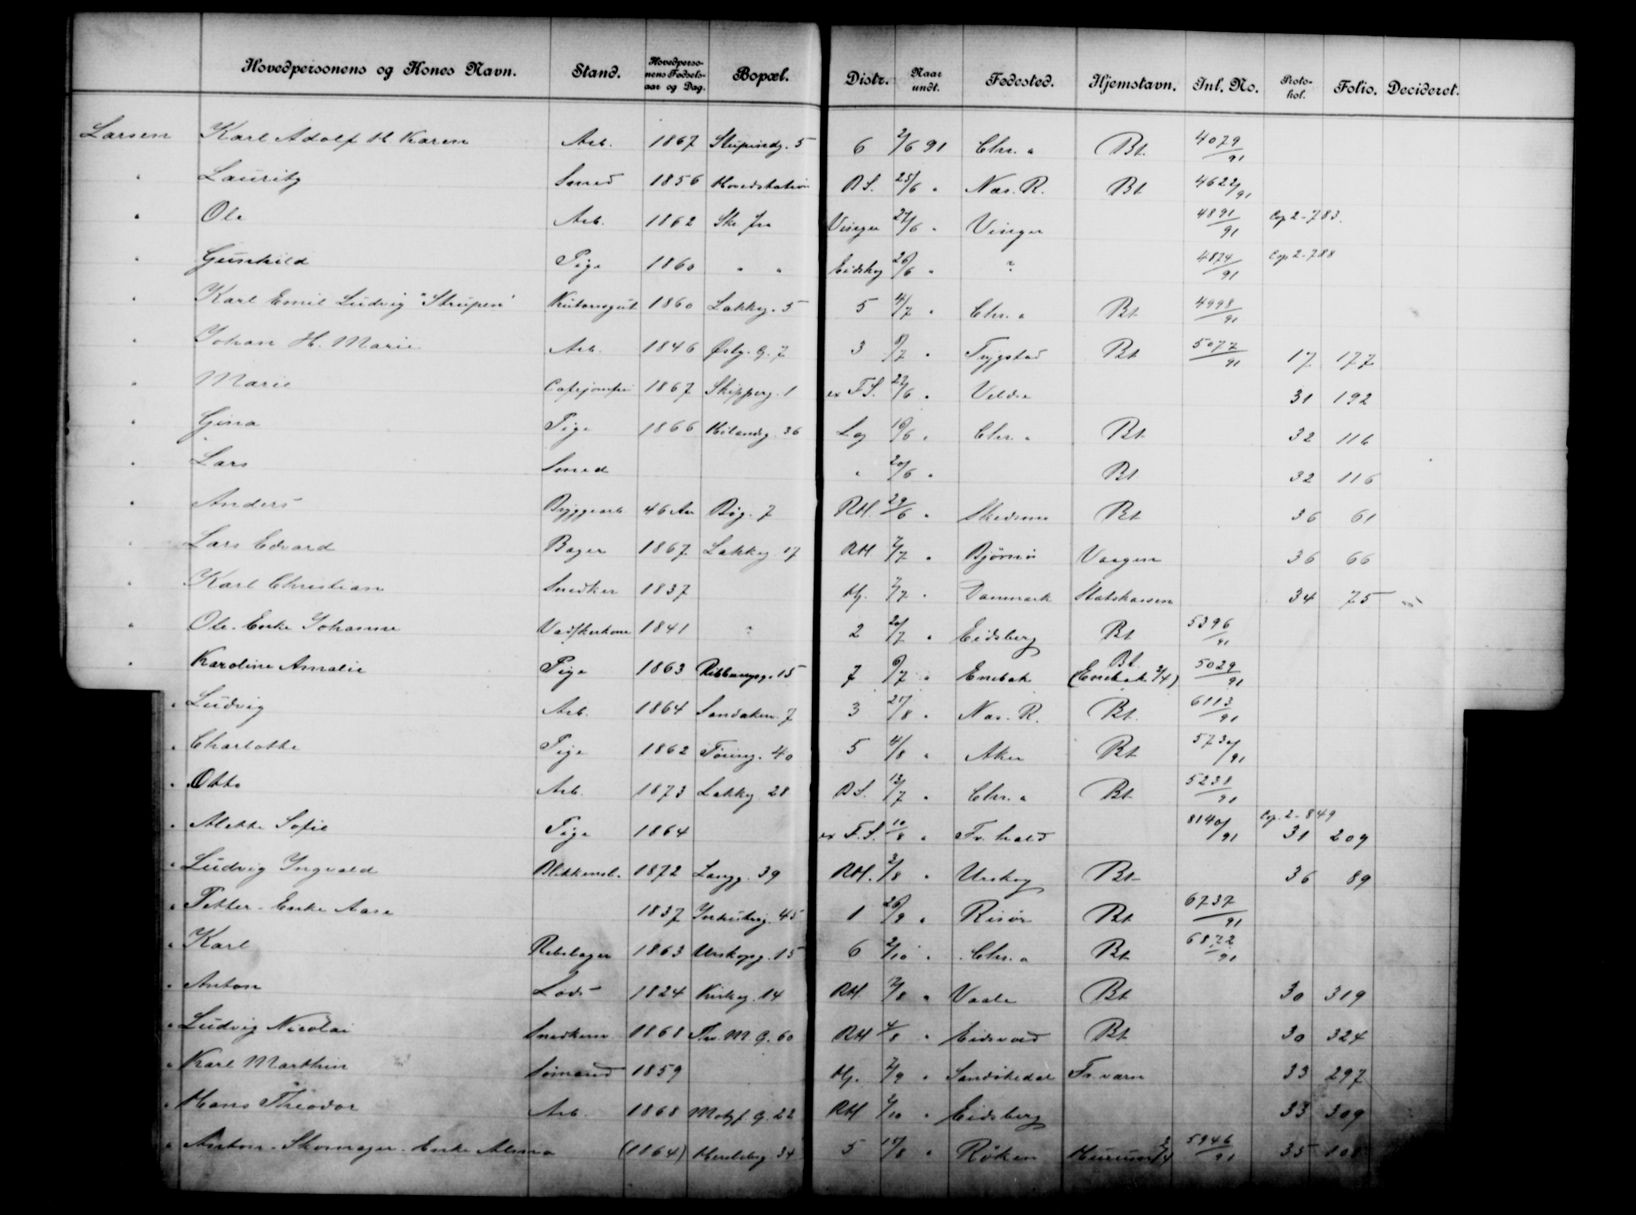 Hovedpersonens og Kones Navn. Stand. Hovedpersonens Fødselsaar og Dag. Bopæl. Distr. Naar undt. Fødested. Hjemstavn. Inl. No. Protokol. Folio. Decideret.
Larsen Karl Adolf H. Karen Arb. 1867 5 6 2/6 91 Chr. a Bt. 4079/91
" Lauritz Smed 1856 Hovedstation D S. 25/6 " Næs. R. Bt 4622/91
" Ole Arb. 1862 Ske fra Vinger 27/6 " Vinger 4891/91 Cop 2-783.
" Gunhild Pige 1860 " " Eidskog 26/6 " ? 4874/91 Cop 2-788
" Karl Emil Ludvig "Strupen" 1860 Lakkeg. 5 5 4/7 " Chr. a Bt 4998/91
" Johan H. Marie Arb. 1846 Østg. G. 7 3 /7 " Trygstad Bt 5077/91 17 177
" Marie 1867 Skipperg. 1 ex F. S. 27/6 " Veldre 31 192
" Gina Pige 1866 36 Lg 10/6 " Chr. a Bt 32 116
" Lars Smed " 20/6 " Bt 32 116
" Anders Byggearb 46 Aar Bøg. 7 RH. 29/6 " Skedsmo Bt 36 61
" Lars Edvard Bager 1867 Lakkeg 17 RH /7 " Bjørnør Vaagen 36 66
" Karl Christian Snedker 1837 Hj. /7 " Danmark Statskassen 34 75
" Ole. Enke Johanne Vadskerkone 1841 " 2 20/7 " Eidsberg Bt 5396/91
" Karoline Amalie Pige 1863 15 7 6/7 " Enebak Bt. (Enebak 2/4) 5029/91
" Ludvig Arb. 1864 Sandaker. 7 3 /8 " Næs. R. Bt. 6113/91
" Charlotte Pige 1862 40 5 4/8 " Aker Bt 5730/91
" Otto Arb 1873 Lakkeg 28 D S. 13/7 " Chr. a Bt 5238/91
" Alette Sofie Pige 1864 ex F. S. 10/8 " Fr. hald 8140/91 Cop. 2-849 31 209
" Ludvig Ingvald 1872 Langg. 39 RH. 3/8 " Urskog Bt 36 89
" Petter - Enke Aase 1837 45 1 26/9 " Risør Bt 6737/91
" Karl Rebslager 1863 Urskogg. 15 6 2/10 " Chr. a Bt 6872/91
" Anton Lods 1824 Kirkeg. 14 RH /8 " Vaale Bt 30 319
" Ludvig Nicolai Snedkersv 1868 Thv. M. G. 60 RH 4/8 " Eidsvold Bt 30 324
" Karl Marthin Sømand 1859 Hj. /9 " Sandskedal Fr. værn 33 297
" Hans Theodor Arb. 1868 Motzf. G. 22 RH /10 " Eidsberg 33 309
" Anton. Skomager. Enke (1864) 34 5 15/8 " Røken Hurum 2/4 5946/91 35